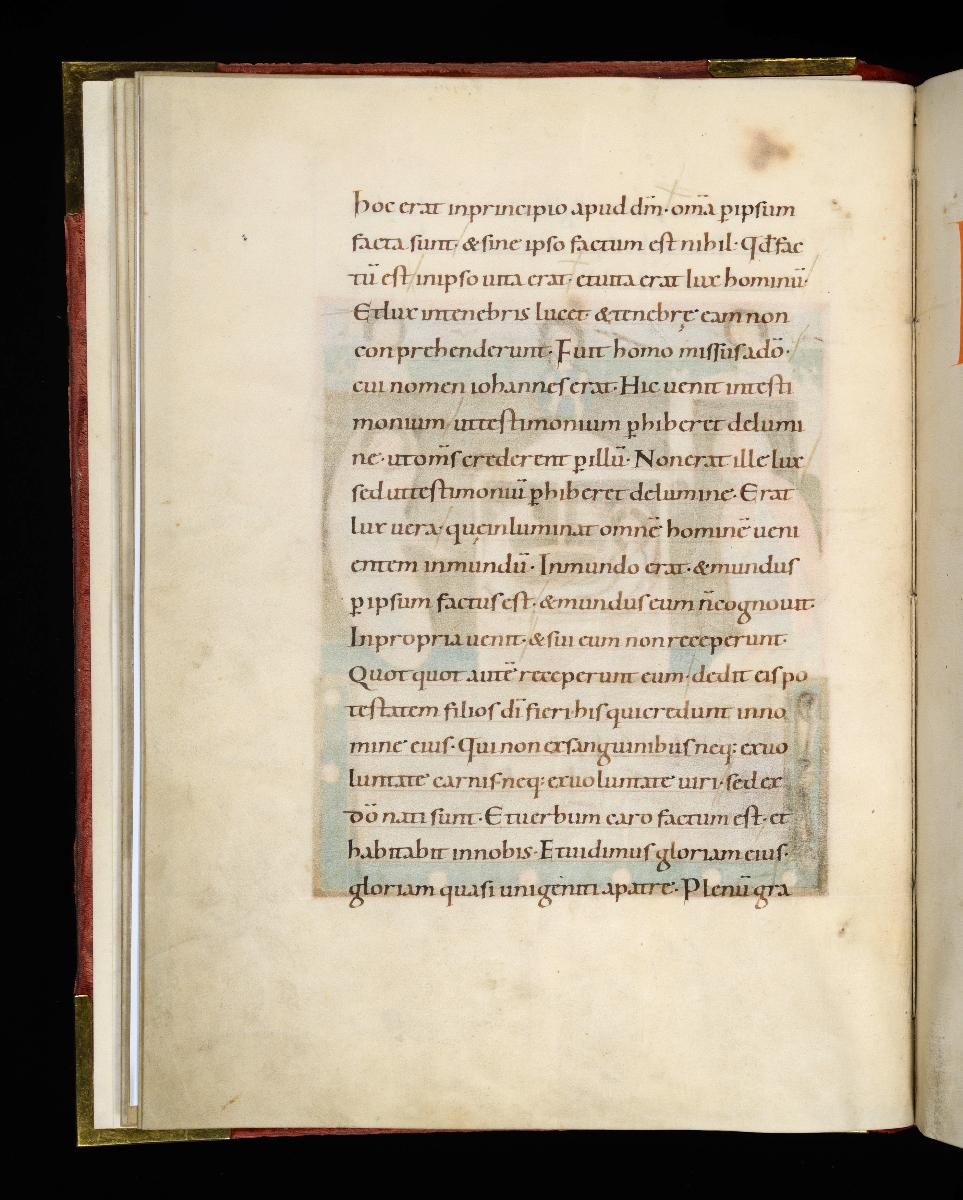 hoc erat inprincipio apud dm̄· om̄a ꝑipsum
facta sunt· & sine ipso factum est nihil· Qd̄ fac
tū est inipso uita erat· etuita erat lux hominū·
Etlux intenebris lucet· & tenebrę eam non
conprehenderunt· Fuit homo missus adō·
cui nomen iohannes erat· Hic uenit intesti
monium uttestimonium ꝑhiberet delumi
ne· utom̄s crederent ꝑillū· Nonerat ille lux
sed uttestimoniū ꝑhiberet delumine· Erat
lux uera· quęinluminat omnē hominē ueni
entem inmundū· Inmundo erat· & mundus
ꝑipsum factus est· & mundus eum n̄cognouit·
Inpropria uenit· & sui eum nonreceperunt·
Quot quot autē receperunt eum· dedit eis po
testatem filios dī fieri· his quicredunt inno
mine eius· Qui non exsanguinibus neq: exuo
luntate carnis· neq: exuoluntate uiri· sed ex
dō nati sunt· Etuerbum caro factum est· et
habitabit innobis· Etuidimus gloriam eius·
gloriam quasi unigeniti apatre· Plenū gra